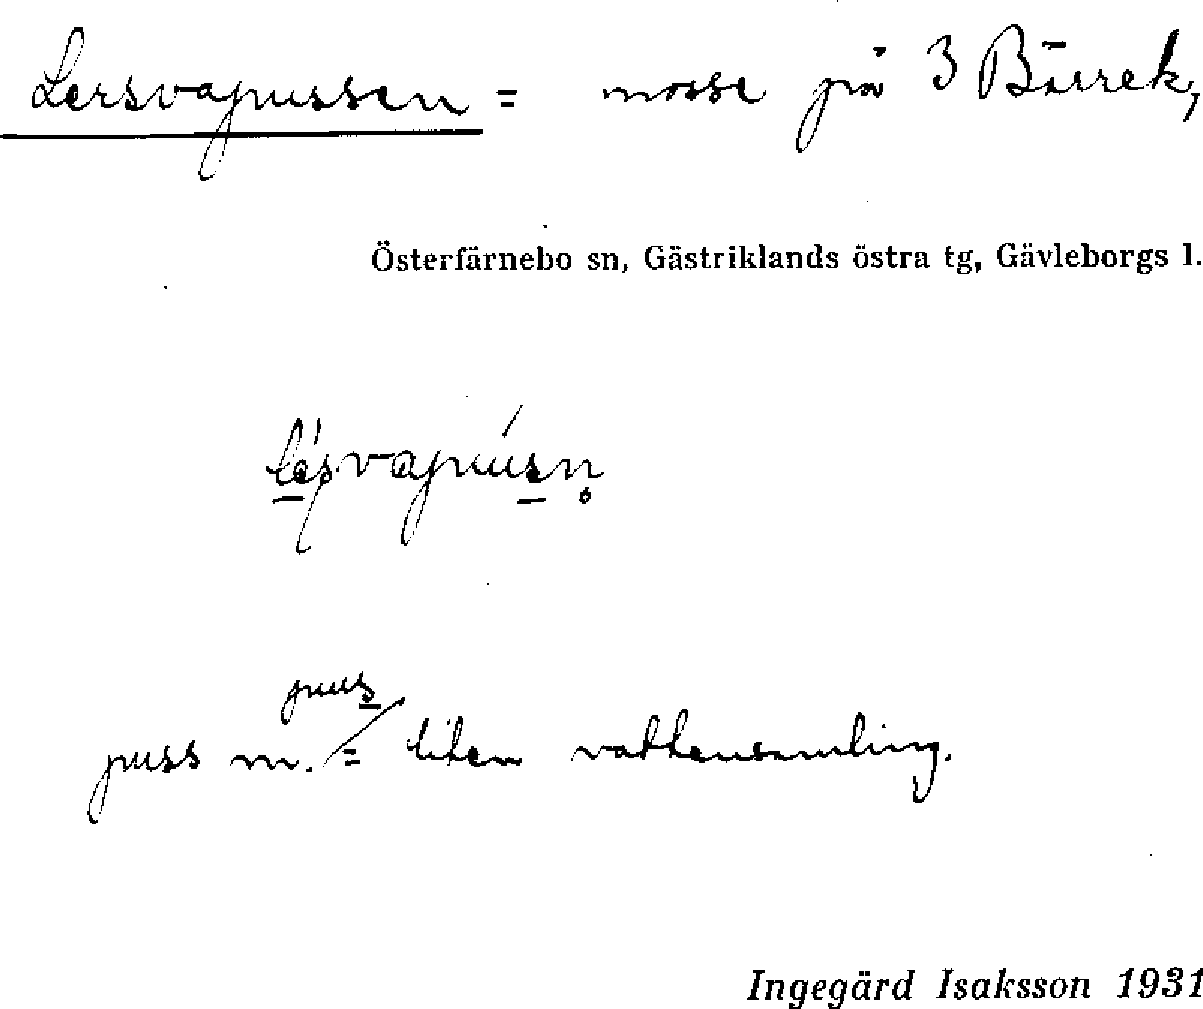 Lersvapussen = mosse på 3 Bärrek,
Österfärnebo sn, Gästriklands östra tg, Gävleborgs l.
puss
puss m. = liten vattensamling.
Ingegärd Isaksson 1931